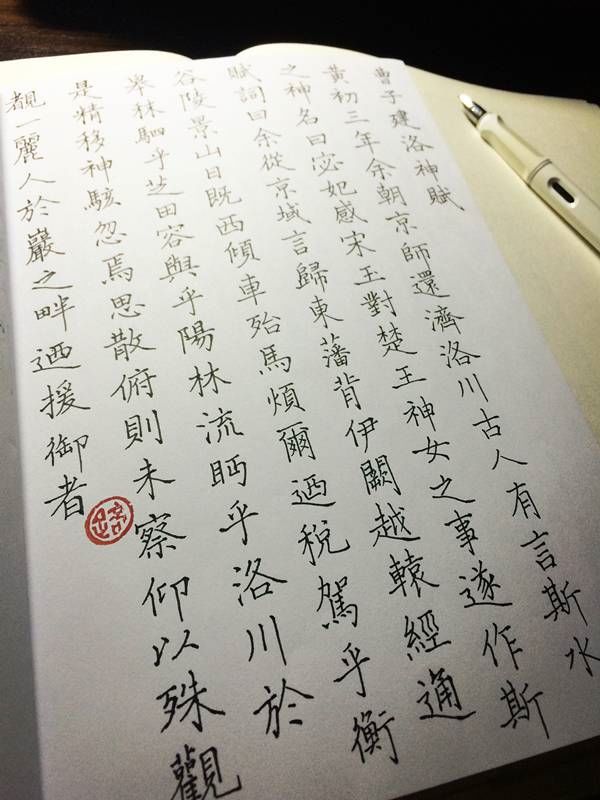 曹子建洛神賦
黃初三年余朝京師還濟洛川古人有言斯水
之神名曰宓妃感宋王對楚王神女之事遂作斯
賦詞曰余從京域言歸東藩背伊闕越轅經通
谷陵景山日既西傾車殆馬煩爾迺稅駕乎衡
皋林駟乎芝田容與乎陽林流眄乎洛川於
是精移神駭忽焉思散俯則未察仰以殊觀
覩一麗人於巖之畔迺援御者